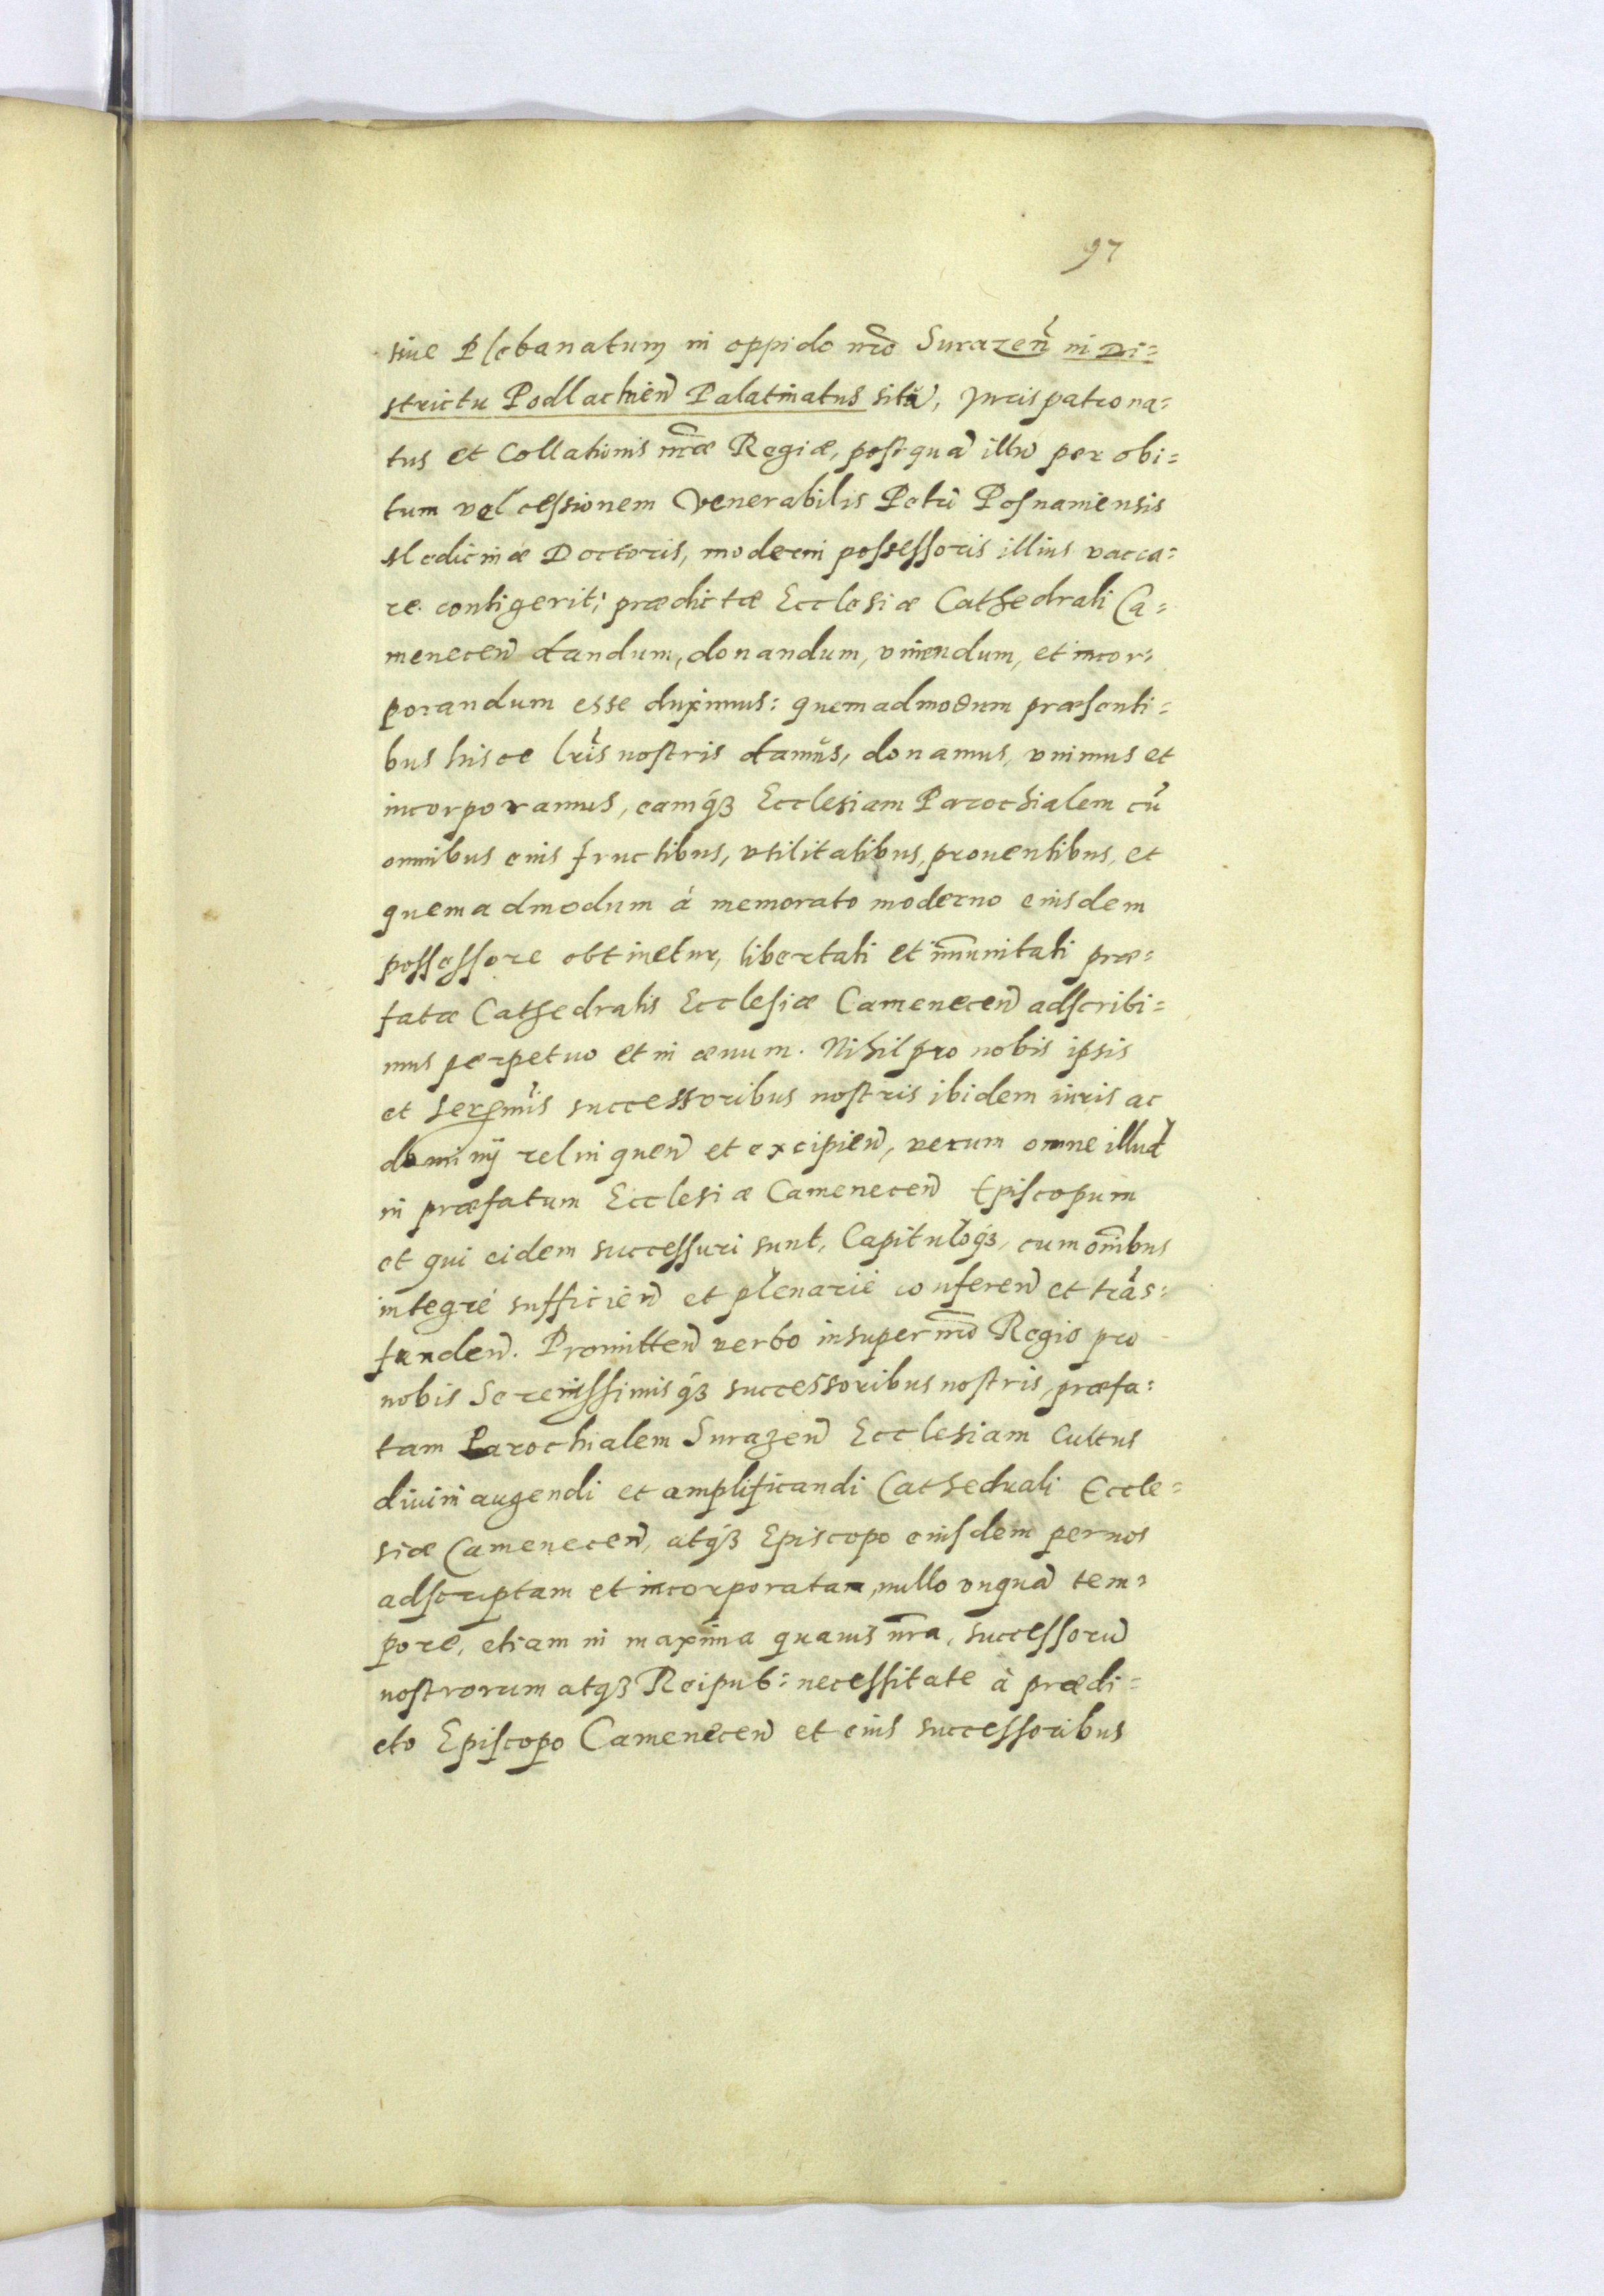 97
siue Plebanatum in oppido nr̃o Surazeñ in Di=
strictu Podlachień Palatinatus sitũ, Juris patrona=
tus et Collationis nr̃æ Regiæ, postquã illũ per obi=
tum vel cessionem Venerabilis Petri Posnaniensis
Medicinæ Doctoris, moderni possessoris illius vacca=
re contigerit; prædictæ Ecclesiæ Cathedrali Ca=
meneceñ dandum, donandum, vniendum, et incor=
porandum esse duximus: quemadmodum præsenti=
bus hisce lr̃is nostris damus, donamus, vnimus et
incorporamus, eamq́ꝫ Ecclesiam Parochialem cũ
omnibus eius fructibus, vtilitatibus, prouentibus, et
quemadmodum à memorato moderno eiusdem
possessore obtinetur, libertati et im̃unitati præ=
fatæ Cathedralis Ecclesiæ Cameneceñ adscribi=
mus perpetuo et in æuum. Nihil pro nobis ipsis
et Serẽmis successoribus nostris ibidem iuris ac
dominij relinqueñ et excipieñ, verum omne illud
in præfatum Ecclesiæ Cameneceñ Episcopum
et qui eidem successuri sunt, Capituloq́ꝫ, cum om̃ibus
integrè sufficieñ et plenariè confereñ et trãs=
fundeñ. Promitteñ verbo insuper nr̃o Regio pro
nobis Serenissimisq́ꝫ successoribus nostris, præfa=
tam Parochialem Surazeñ Ecclesiam Cultus
diuini augendi et amplificandi Cathedrali Eccle=
siæ Cameneceñ, atq́ꝫ Episcopo eiusdem per nos
adscriptam et incorporatam, nullo vnquã tem=
pore, etiam in maxima quauis nr̃a, successorũ
nostrorum atqꝫ Reipub: necessitate à prædi=
cto Episcopo Cameneceñ et eius successoribus